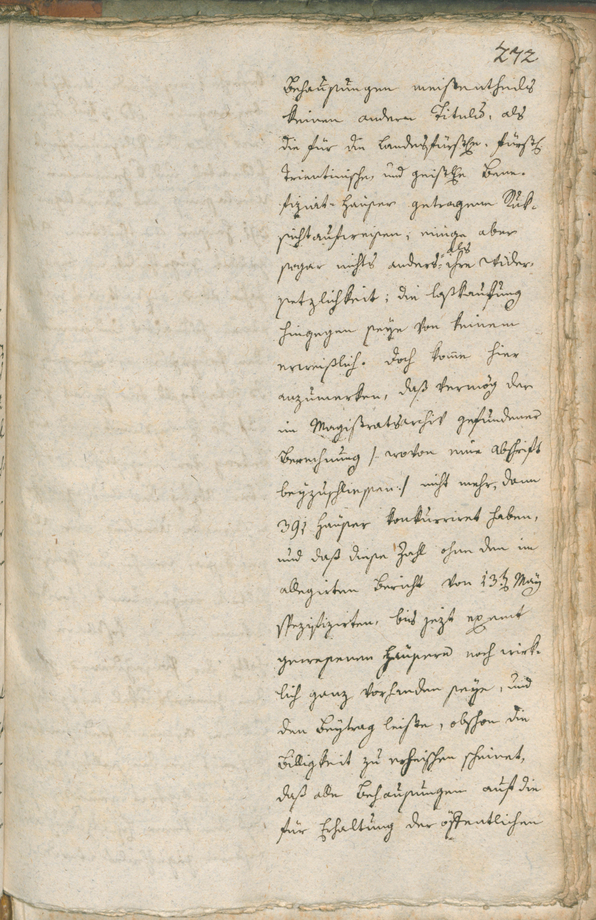 272
Behausungen meistentheils
keinen andern Titulo, als
die für die Landesfürstl., fürstl.
Trientinische, und geistliche Bene-
fiziat-Häuser getragene Rük-
sicht aufweisen; einige aber
sogar nichts anders, als ihre Wider-
setzlichkeit; die Loskaufung
hingegen seye von keinem
erweißlich. Doch kome hier
anzumerken, daß vermög der
im Magistratsarchiv gefundenen
Berechnung /: wovon eine Abschrift
beyzuschliessen :/ nicht mehr, dann
391 Häuser konkurriret haben,
und daß diese Zahl ohne den im
allegirten Bericht von 13ten May
spezifizirten, bis jezt exemt
gewesenen Häusern noch wirk-
lich ganz vorhanden seye, und
den Beytrag leiste, obschon die
Billigkeit zu erheischen scheinet,
daß alle Behausungen auf die
für Erhaltung der öffentlichen